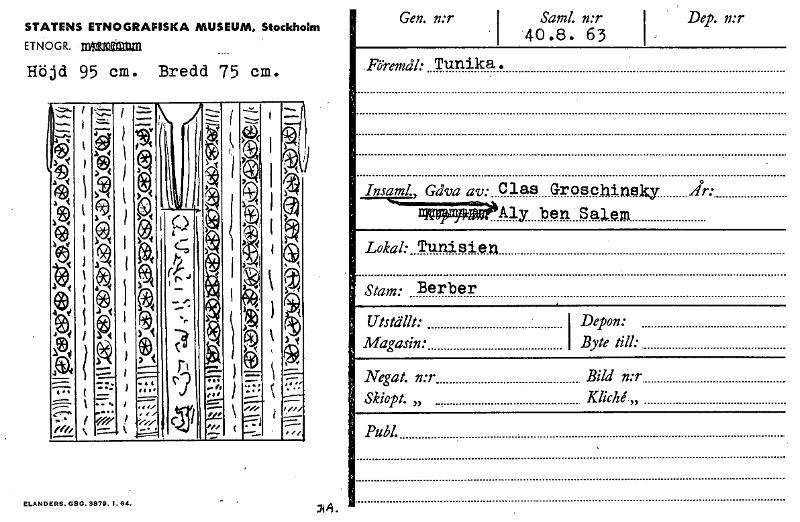 STATENS ETNOGRAFISKA MUSEUM, Stockholm
ETNOGR.
Höjd 95 cm. Bredd 75 cm.
ELANDERS. GBG. 3879. 1. 64.
HA.
Gen. n:r Saml. n:r Dep. n:r
40.8. 63
Föremål: Tunika.
Insaml., Gåva av: Clas Groschinsky År:
Aly ben Salem
Lokal: Tunisien
Stam: Berber
Utställt: Depon:
Magasin: Byte till:
Negat. n:r Bild n:r
Skiopt. „ Kliché „
Publ.